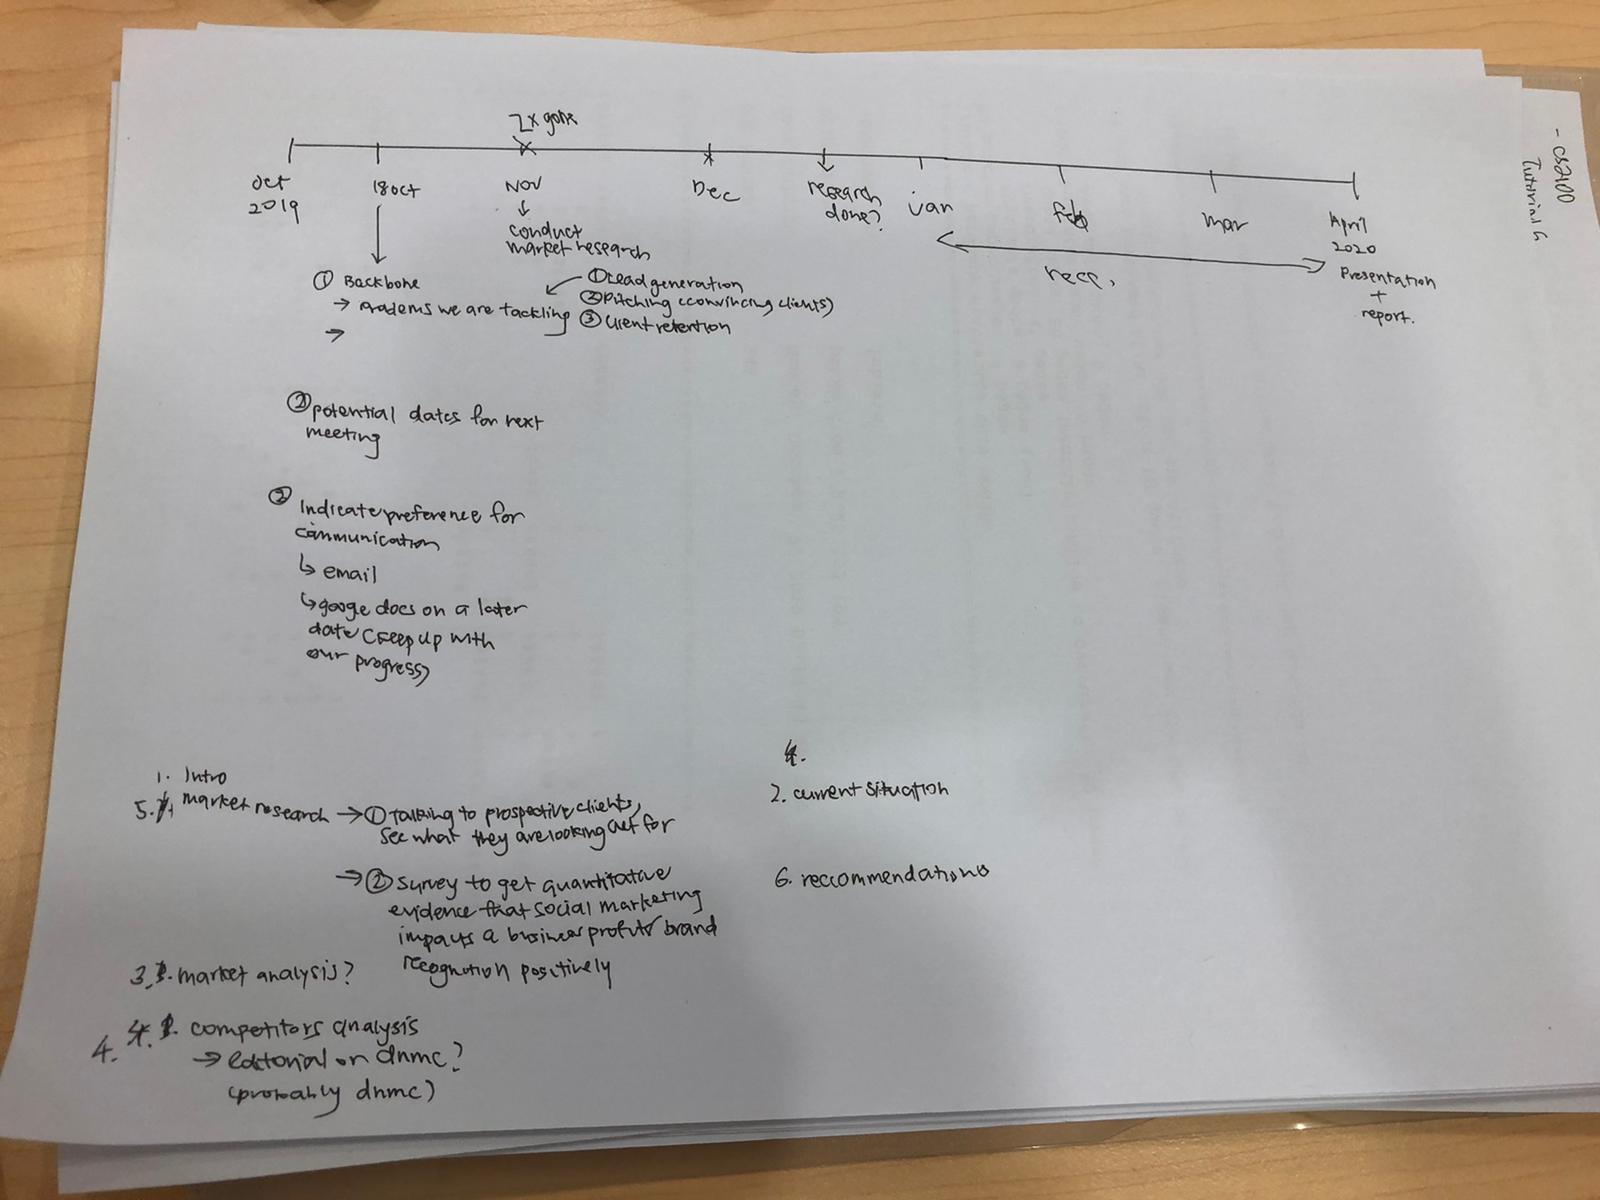 2x gone
Oct
2019
18 oct
Nov
Dec
research
done?
Jan
Feb
Mar
April
2020
Presentation
+
report.
↓
conduct
market research
recc.
① Backbone
→ Problems we are tackling
→
① Lead generation
② Pitching (convincing clients)
③ Client retention
② potential dates for next
meeting
② Indicate preference for
communication
↳ email
↳ google docs on a later
date (keep up with
our progress)
1. Intro
5. market research → ① Talking to prospective clients,
see what they are looking out for
→ ② survey to get quantitative
evidence that social marketing
impacts a business profits/ brand
recognition positively
3. market analysis?
4. competitors analysis
→ editorial or dnmc?
(probably dnmc)
4.
2. current situation
6. reccommendations
- CS2100
Tutorial 6